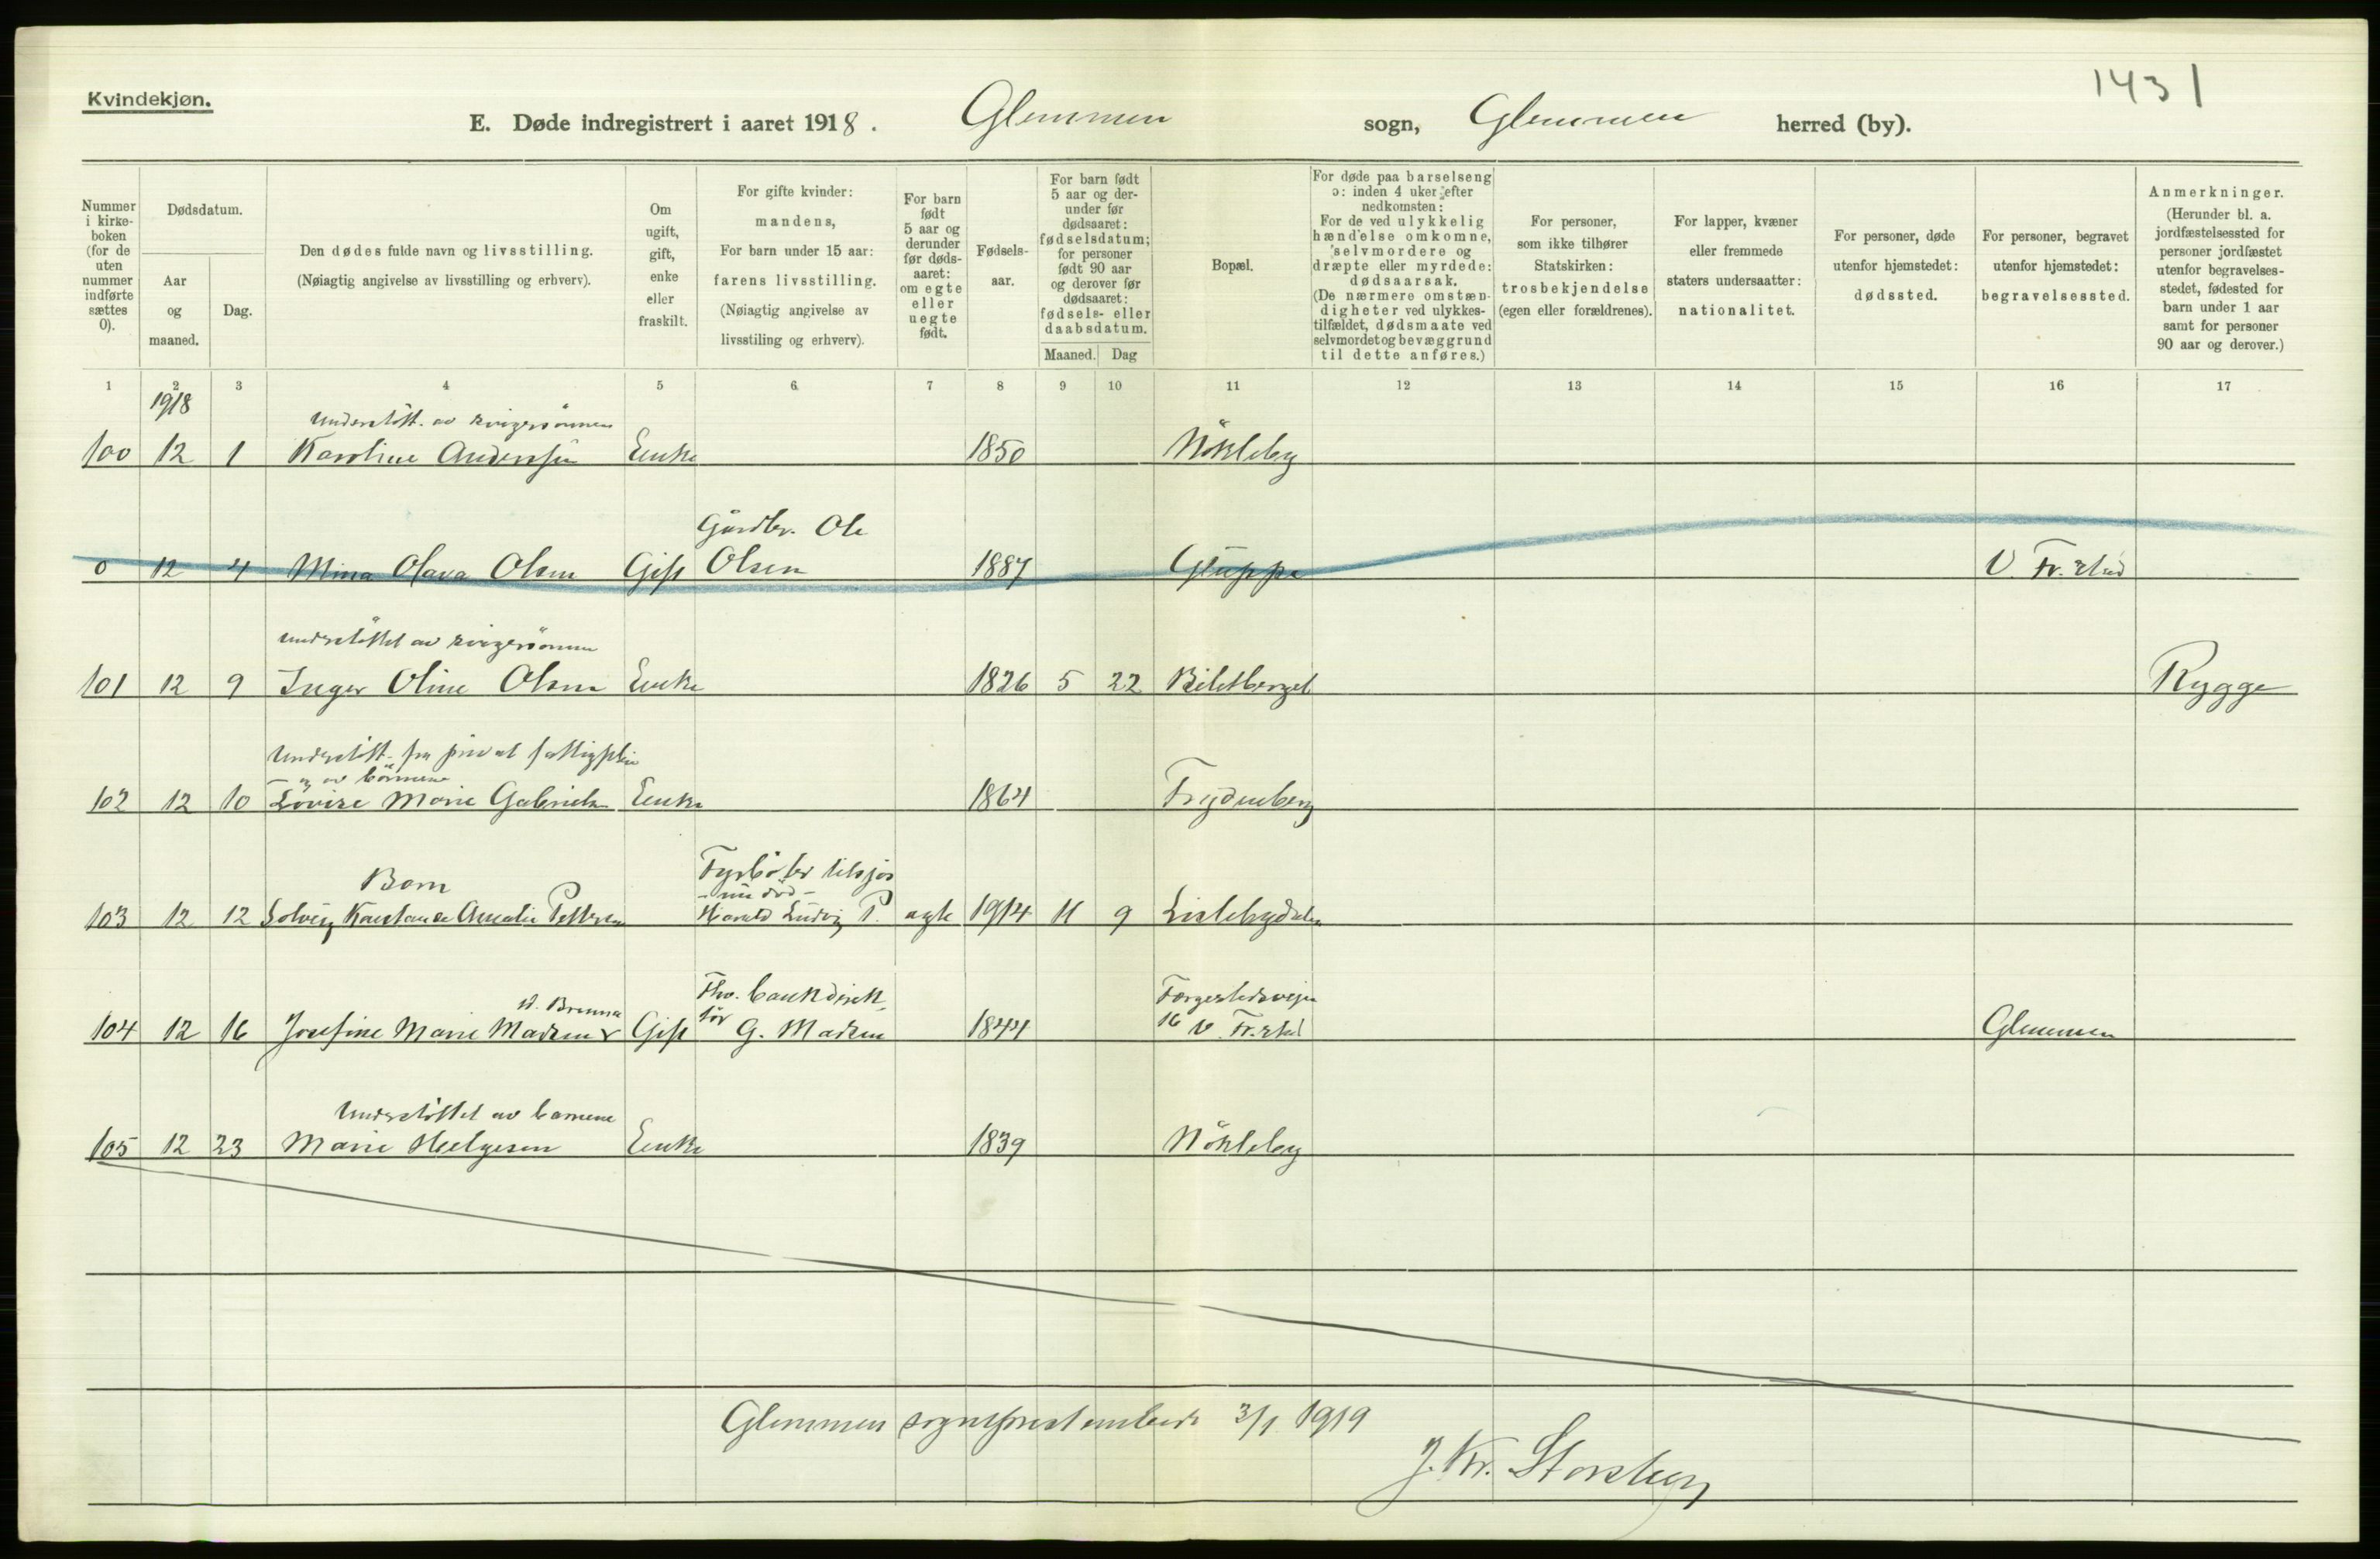 Kvindekjøn.
1431
E. Døde indregistrert i aaret 1918. Glemmen sogn, Glemmen herred (by).
Nummer i kirkeboken (for de uten nummer indførte sættes 0).
Dødsdatum.
Aar og maaned.
Dag.
Den dødes fulde navn og livsstilling.
(Nøiagtig angivelse av livsstilling og erhverv).
Om ugift, gift, enke eller fraskilt.
For gifte kvinder: mandens,
For barn under 15 aar: farens livsstilling.
(Nøiagtig angivelse av livsstiling og erhverv).
For barn født 5 aar og derunder før dødsaaret: om egte eller uegte født.
Fødselsaar.
For barn født 5 aar og derunder før dødsaaret: fødselsdatum; for personer født 90 aar og derover før dødsaaret: fødsels- eller daabsdatum.
Maaned. Dag
Bopæl.
For døde paa barselseng ɔ: inden 4 uker efter nedkomsten:
For de ved ulykkelig hændelse omkomne, selvmordere og dræpte eller myrdede: dødsaarsak.
(De nærmere omstændigheter ved ulykkestilfældet, dødsmaate ved selvmordet og bevæggrund til dette anføres.)
For personer, som ikke tilhører Statskirken: trosbekjendelse (egen eller forældrenes).
For lapper, kvæner eller fremmede staters undersaatter: nationalitet.
For personer, døde utenfor hjemstedet: dødssted.
For personer, begravet utenfor hjemstedet: begravelsessted.
Anmerkninger.
(Herunder bl. a. jordfæstelsessted for personer jordfæstet utenfor begravelsesstedet, fødested for barn under 1 aar samt for personer 90 aar og derover.)
1 2 3 4 5 6 7 8 9 10 11 12 13 14 15 16 17
1918
Understøtt. av svigersønnen
100 12 1 Karoline Andersen Enke 1850 Nökleby
Gårdbr. Ole
0 12 4 Mina Olava Olsen Gift Olsen 1887 Gluppe V. Fr.stad
understöttet av svigersönnen
101 12 9 Inger Oline Olsen Enke 1826 5 22 Biletberget Rygge
Understött. fra privat fattigpleie
- og av börnene
102 12 10 Lovise Marie Gabrielsen Enke 1864 Frydenberg
Barn Fyrböter tilsjøs
- nu död -
103 12 12 Solveig Konstanse Amalie Pettersen Harald Ludvig P. egte 1914 11 9 Lislebydalen
f. Brenna Fhv. bankdirek- Færgestedsveien
104 12 16 Josefine Marie Madsen Gift tör G. Madsen 1844 16 V. Fr.stad Glemmen
Understöttet av barnene
105 12 23 Marie Helgesen Enke 1839 Nökleby
Glemmen sogneprestembede 3/1 1919
J. Kr. Storsten